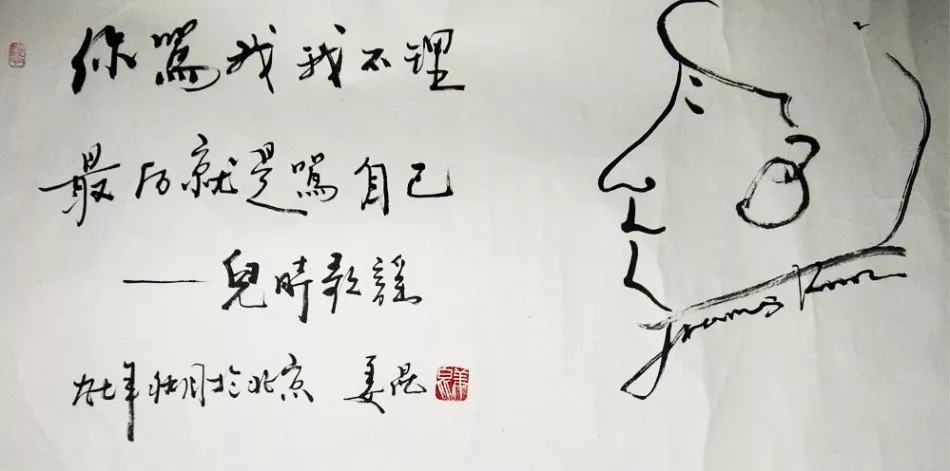 你罵我我不理
最后就是罵自己
——兒時歌謠
九七年壮月於北京 姜昆